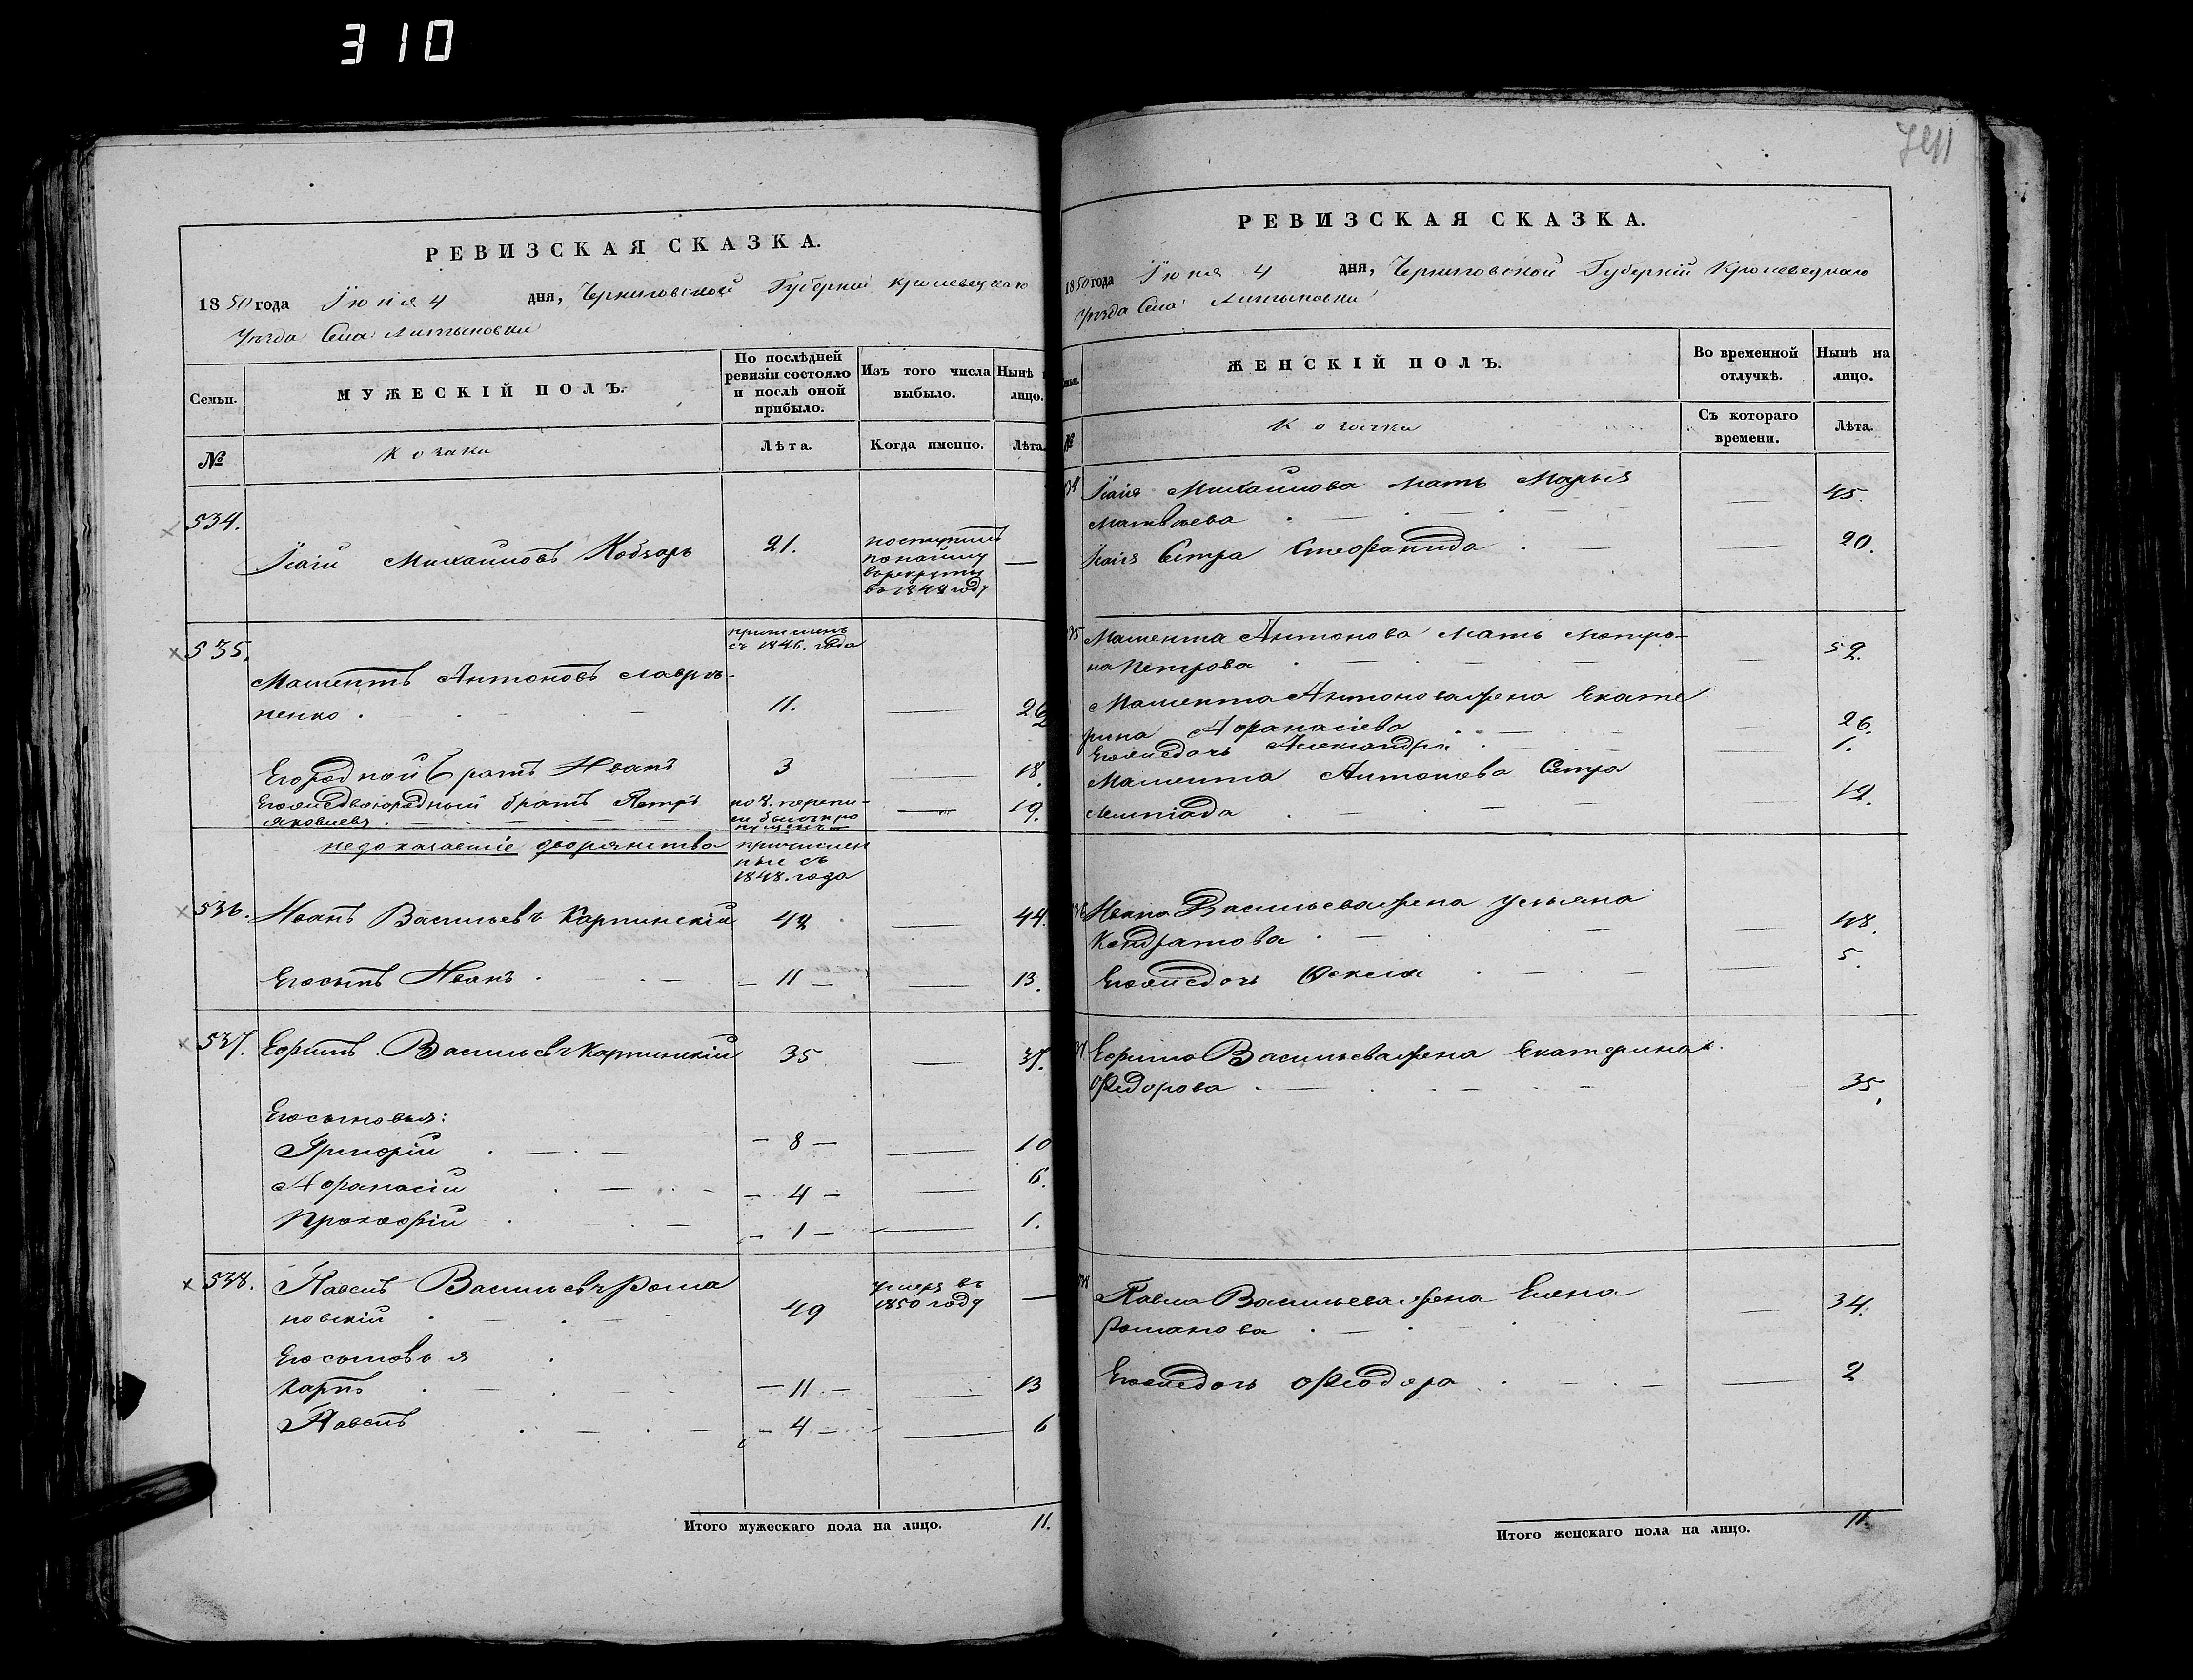 310
РЕВИЗСКАЯ СКАЗКА.
1850 года Іюня 4 дня, Черниговской Губерніи Кролевецкаго
Уѣзда Села Литвиновки
Семьи. МУЖЕСКІЙ ПОЛЪ. По послѣдней ревизіи состояло и послѣ оной прибыло. Изъ того числа выбыло. Нынѣ лицо.
№ Козаки Лѣта. Когда именно. Лѣта.
534.
Ісаій Михайловъ Кобзарь 21. поступилъ
по найму
въ рекруты
въ 1848 году
—
535. причисленъ
съ 1846. года
Маментъ Антоновъ Лаври-
ненко 11. — 26
Его родной братъ Иванъ 3 — 18.
Его же двоюродный братъ Петръ
Яковлевъ по 8. перепи-
си былъ про
пущенъ — 19.
недоказавшіе дворянства причислен
ные съ
1848. года
536. Иванъ Васильевъ Карпинскій 42 — 44.
Его сынъ Иванъ — 11 — — 13.
537. Ефимъ Васильевъ Карпинскій 35 — 37.
Его сыновья:
Григорій — 8 — — 10
Афанасій — 4 — — 6.
Прокофій — 1 — — 1.
538. Павелъ Васильевъ Рома
новскій 49 умеръ въ
1850 году —
Его сыновья
Карпъ — 11 — — 13
Павелъ — 4 — — 6
Итого мужескаго пола на лицо. 11.
РЕВИЗСКАЯ СКАЗКА.
1850 года Іюня 4 дня, Черниговской Губерніи Кролевецкаго
Уѣзда Села Литвиновки
ЖЕНСКІЙ ПОЛЪ. Во временной отлучкѣ. Нынѣ на лицо.
№ Козачки Съ котораго времени. Лѣта.
Ісаія Михайлова мать Марья
Матвѣева — 45.
Ісаія Сестра Стефанида — 20.
Мамента Антонова мать Матро-
на Петрова — 52.
Мамента Антонова жена Екате
рина Афанасіева 26.
Его же дочь Александра — 1.
Мамента Антонова Сестра
Лемпіада 19.
Ивана Васильева жена Ульяна
Кондратова — 48.
Его же дочь — 5.
Ефима Васильева жена Екатерина
Федорова 35.
Павла Васильева жена Елена
Романова — 34.
Его же дочь Феодора — 2
Итого женскаго пола на лицо. 11.